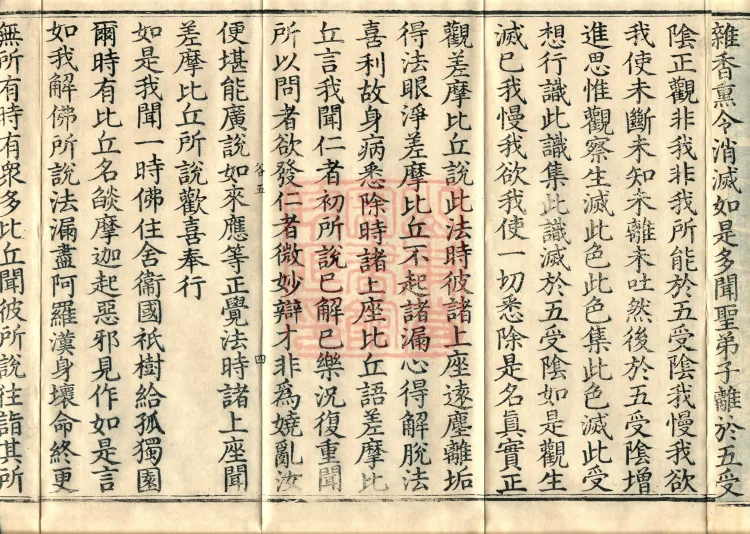 雜香熏令消滅如是多聞聖弟子離於五受
陰正觀非我非我所能於五受陰我慢我欲
我使未斷未知未離未吐然後於五受陰增
進思惟觀察生滅此色此色集此色滅此受
想行識此識集此識滅於五受陰如是觀生
滅已我慢我欲我使一切悉除是名真實正
觀差摩比丘說此法時彼諸上座遠塵離垢
得法眼淨差摩比丘不起諸漏心得解脫法
喜利故身病悉除時諸上座比丘語差摩比
丘言我聞仁者初所說已解已樂況復重聞
所以問者欲發仁者微妙辯才非為嬈亂汝
便堪能廣說如來應等正覺法時諸上座聞
差摩比丘所說歡喜奉行
谷五
四
如是我聞一時佛住舍衛國祇樹給孤獨園
爾時有比丘名燄摩迦起惡邪見作如是言
如我解佛所說法漏盡阿羅漢身壞命終更
無所有時有眾多比丘聞彼所說往詣其所